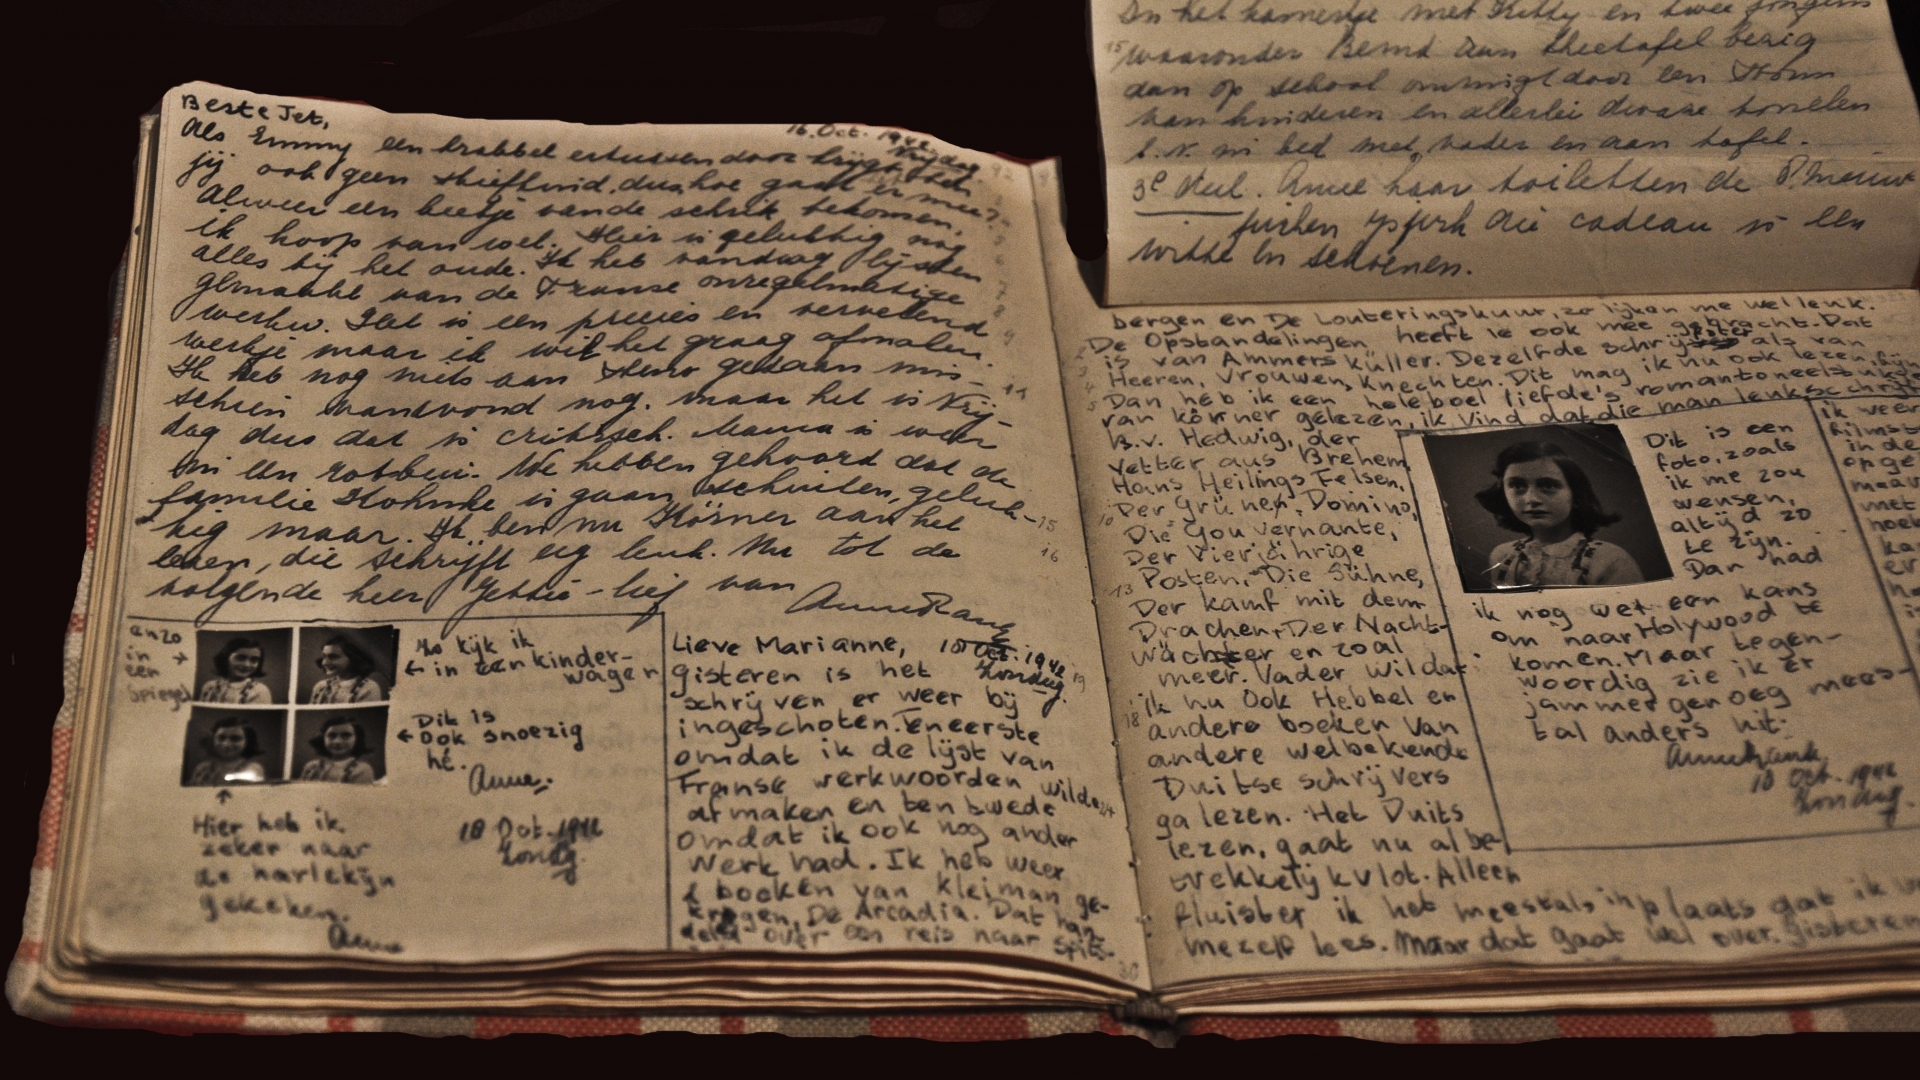 Beste Jet,
16. Oct. 1942.
Vrijdag.
Als Emmy een krabbel ertussendoor krijgt heb
jij ook geen stiefkind, dus hoe gaat er mee?
Alweer een beetje van de schrik bekomen,
ik hoop van wel. Hier is gelukkig nog
alles bij het oude. Ik heb vandaag lijsten
gemaakt van de Franse onregelmatige
werkw. Het is een precies en vervelend
werkje maar ik wil het graag afmaken.
Ik heb nog niets aan steno gedaan mis-
schien vanavond nog. maar het is Vrij-
dag dus dat is critirsch. Mama is weer
in een rotbui. We hebben gehoord dat de
familie is gaan schuilen, geluk-
kig maar. Ik ben nu Körner aan het
lezen, die schrijft erg leuk. Nu tot de
volgende keer Jettie-lief van
Anne Frank
enzo
in
een
spiegel
Ho kijk ik
in een kinder-
wagen
Dit is
ook snoezig
hè.
Anne.
Hier heb ik
zeker naar
de harlekijn
gekeken.
Anne
18 Oct. 1942
Zondag.
Lieve Marianne,
18 Oct. 1942
Zondag.
gisteren is het
schrijven er weer bij
ingeschoten. Teneerste
omdat ik de lijst van
Franse werkwoorden wilde
afmaken en ten twede
omdat ik ook nog ander
werk had. Ik heb weer
2 boeken van Kleiman ge-
kregen, De Arcadia. Dat han-
deld over een reis naar Spits-
In het kamertje met Kitty en twee jongens
waaronder Bernd aan theetafel bezig
dan op school omringt door een stroom
van kinderen en allerlei dwaze tonelen
b.v. in bed met vader en aan tafel.
3e deel. Anne haar toiletten de
die cadeau is een
witte en schoenen.
bergen en De Louteringskuur, zo lijken me wel leuk.
De Opstandelingen heeft ie ook mee gebracht. Dat
is van Ammers Küller. Dezelfde schrijfster als van
Heeren, Vrouwen, Knechten. Dit mag ik nu ook lezen, fijn
Dan heb ik een heleboel liefde's romantoneelstukjes
van körner gelezen, ik vind dat die man leuk schrijft
B.v. Hedwig, der
Vetter aus Brehem,
Hans Heilings Felsen,
Der Grüner Domino,
Die Gouvernante,
Der Vierjährige
Posten, Die Sühne,
Der kamf mit dem
Drachen, Der Nacht-
wächter en zoal
meer. Vader wil dat
ik nu ook Hebbel en
andere boeken van
andere welbekende
Duitse schrijvers
ga lezen. Het Duits
lezen, gaat nu al be-
trekkelijk vlot. Alleen
fluister ik het meestal, in plaats dat ik
mezelf lees. Maar dat gaat wel over. Gisteren
Dit is een
foto, zoals
ik me zou
wensen,
altijd zo
te zijn.
Dan had
ik nog wel een kans
om naar Holywood te
komen. Maar tegen-
woordig zie ik er
jammer genoeg mees-
tal anders uit.
Anne Frank
18 Oct. 1942
Zondag.
ik weer
in de
met